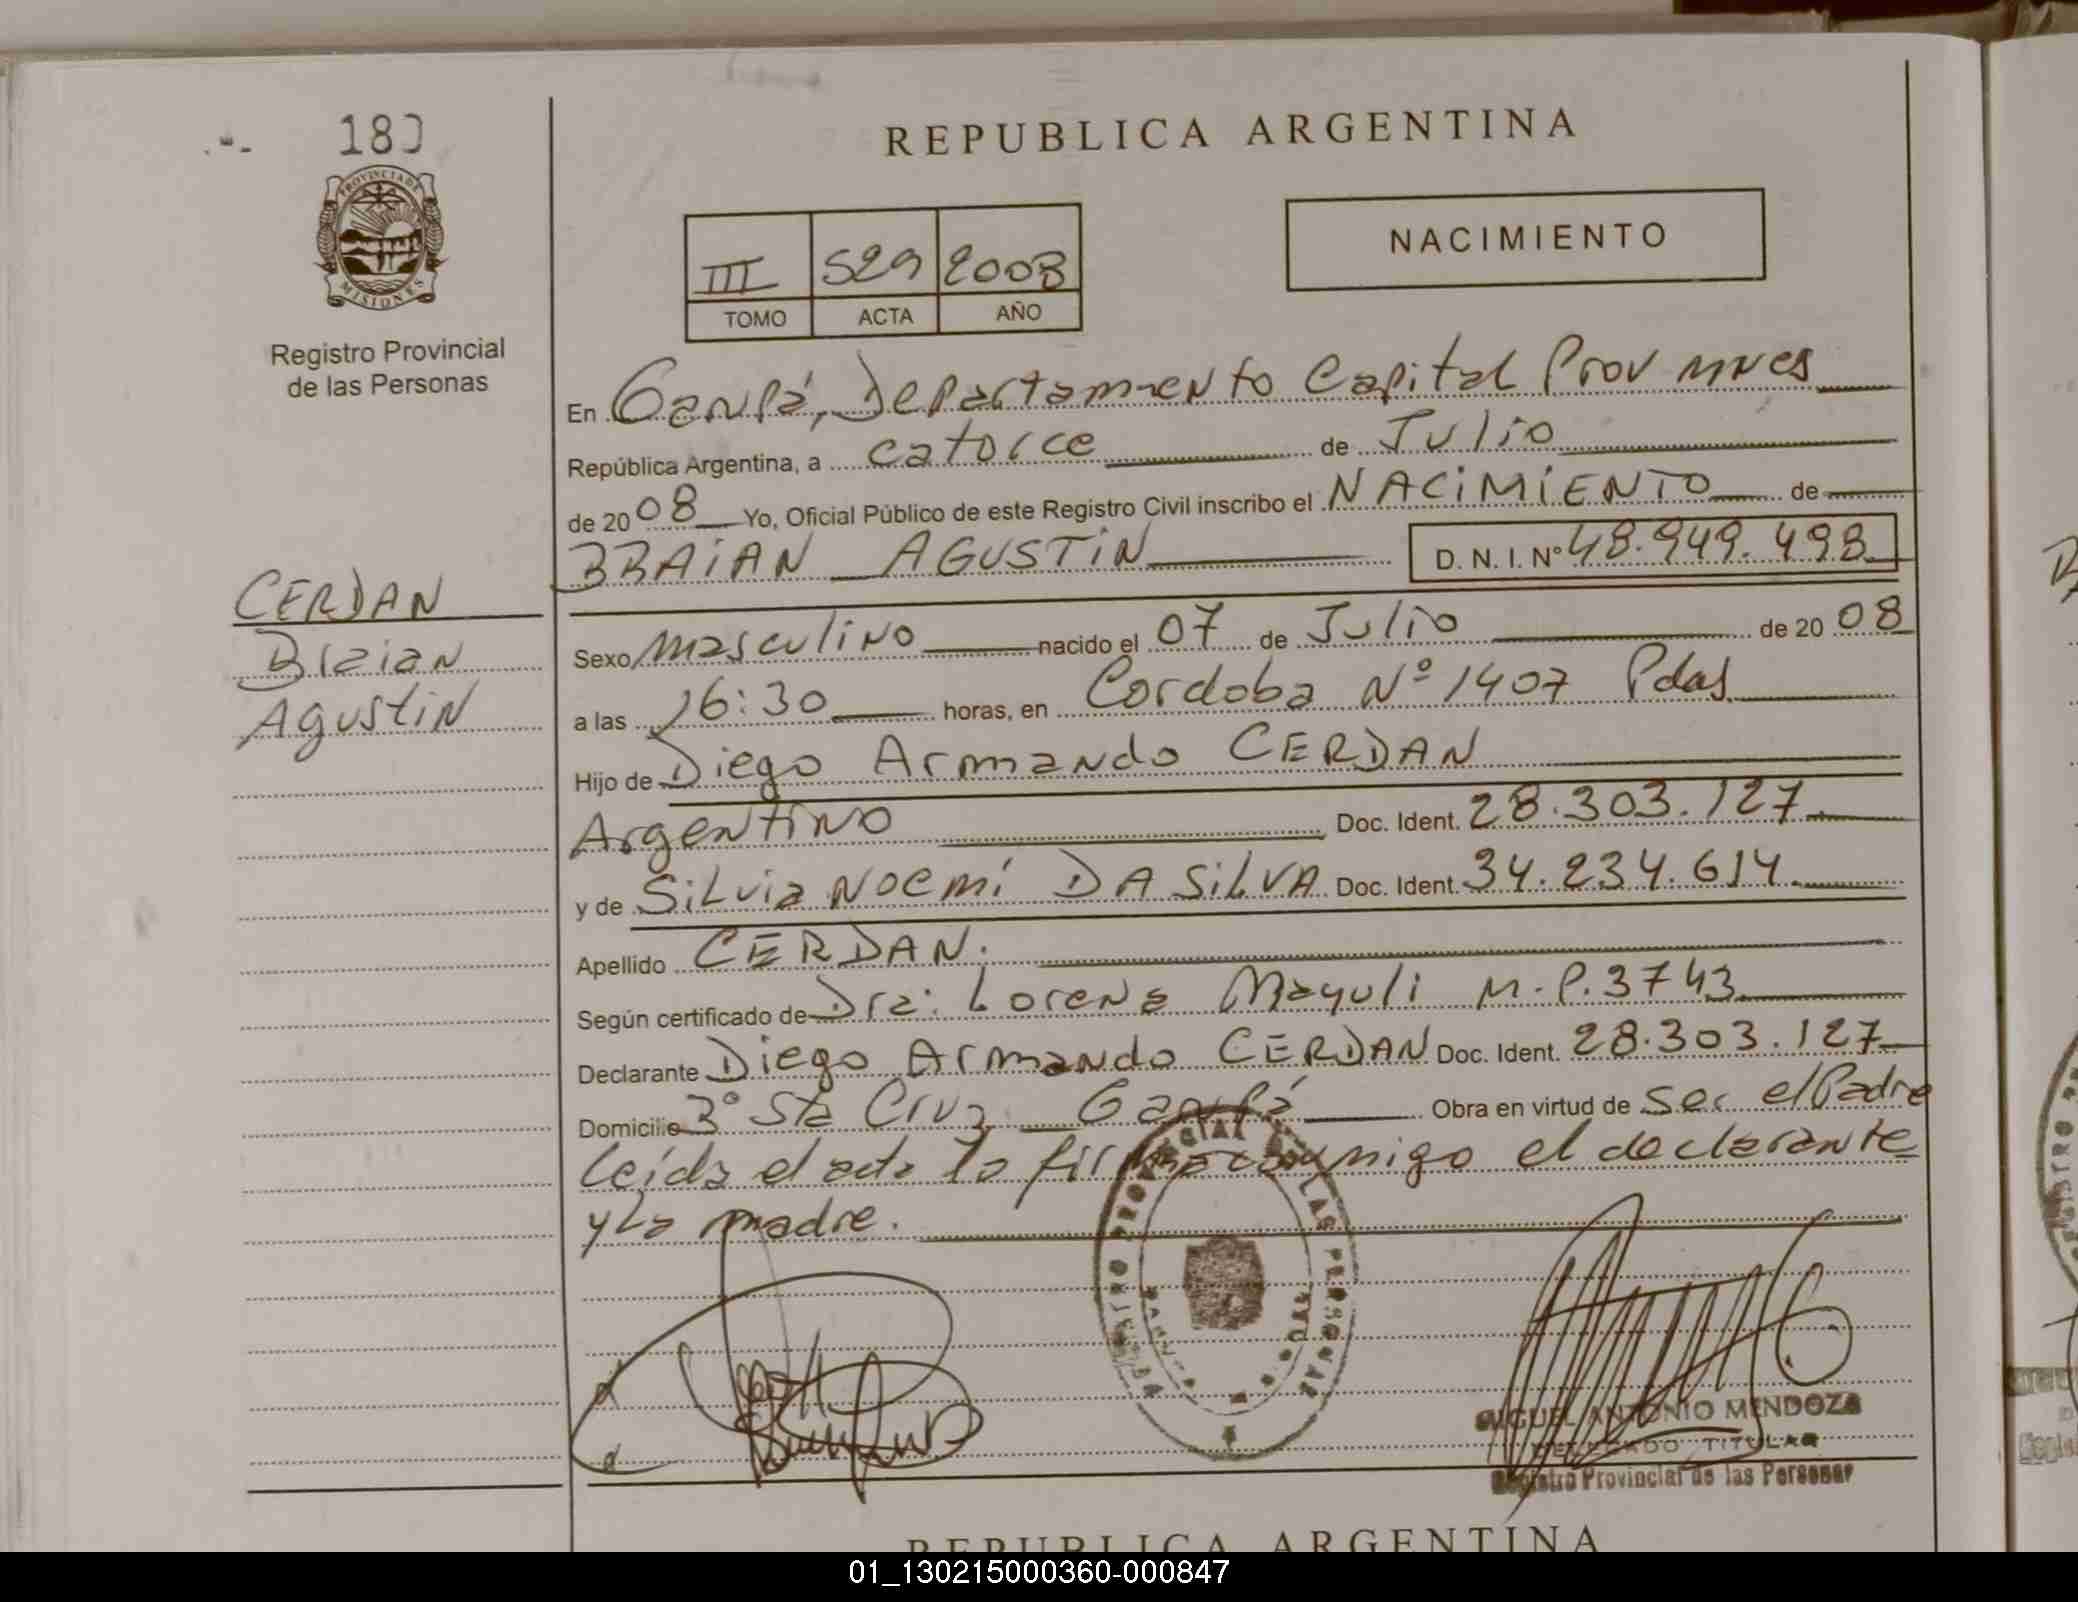 180
PROVINCIA DE MISIONES
Registro Provincial
de las Personas
REPUBLICA ARGENTINA
NACIMIENTO
III 529 2008
TOMO ACTA AÑO
En Garupá, Departamento Capital Prov Mnes
República Argentina, a catorce de Julio
de 2008 Yo, Oficial Público de este Registro Civil inscribo el NACIMIENTO de
BRAIAN AGUSTIN D. N. I. Nº 48.949.498
CERDAN
Braian
Agustin
Sexo masculino nacido el 07 de Julio de 2008
a las 16:30 horas, en Cordoba Nº 1407 Pdas
Hijo de Diego Armando CERDAN
Argentino Doc. Ident. 28.303.127
y de Silvia Noemí DA SILVA Doc. Ident. 34.234.614
Apellido CERDAN.
Según certificado de Dra: Lorena Mayuli M.P. 3743
Declarante Diego Armando CERDAN Doc. Ident. 28.303.127
Domicilio 3º Sta Cruz Garupá Obra en virtud de ser el Padre
Leída el acta la firma conmigo el declarante
y La madre.
REGISTRO PROVINCIAL DE LAS PERSONAS
MIGUEL ANTONIO MENDOZA
DELEGADO TITULAR
Registro Provincial de las Personas
REPUBLICA ARGENTINA
01_130215000360-000847